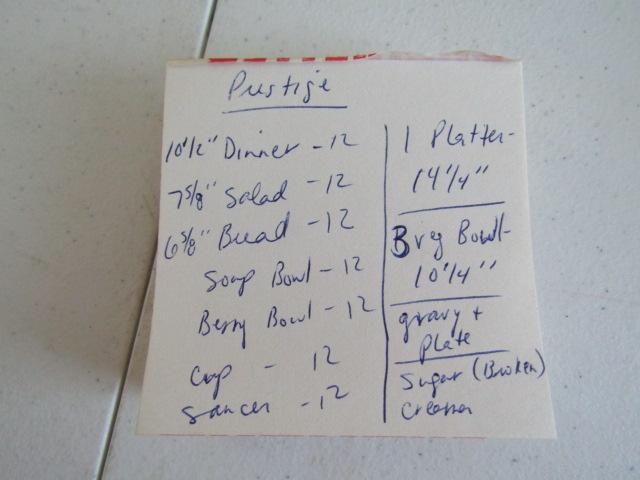 Prestige
10 1/2" Dinner - 12
7 5/8" Salad - 12
6 5/8" Bread - 12
Soup Bowl - 12
Berry Bowl - 12
Cup - 12
Saucer - 12
1 Platter -
14 1/4"
3 veg Bowl -
10 1/4"
gravy +
Plate
Sugar (Broken)
Creamer